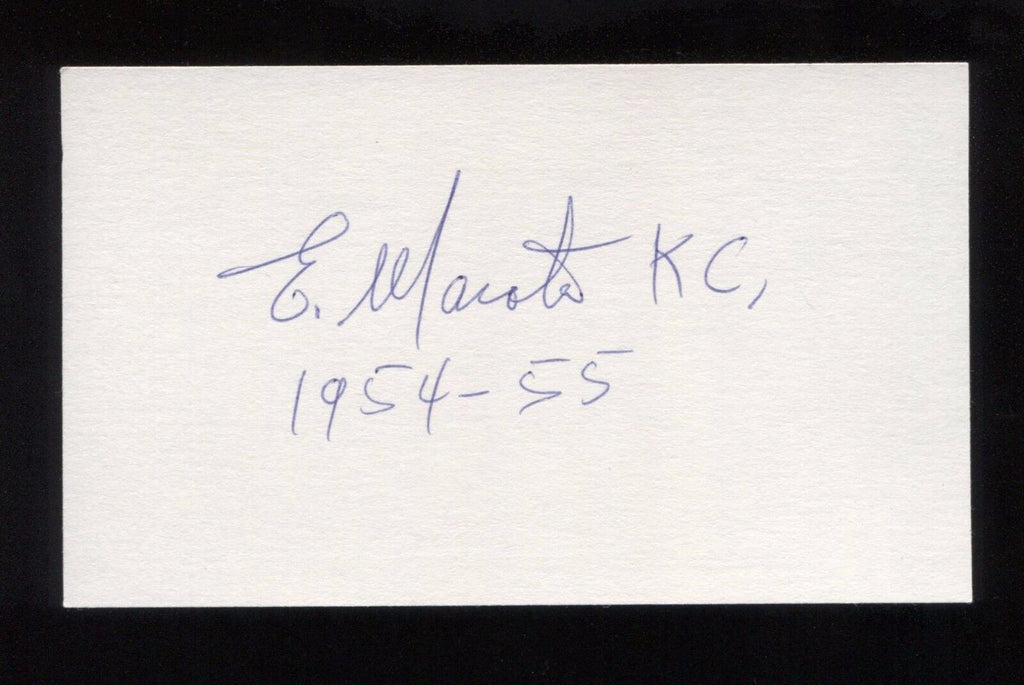 E. Maroto KC,
1954-55